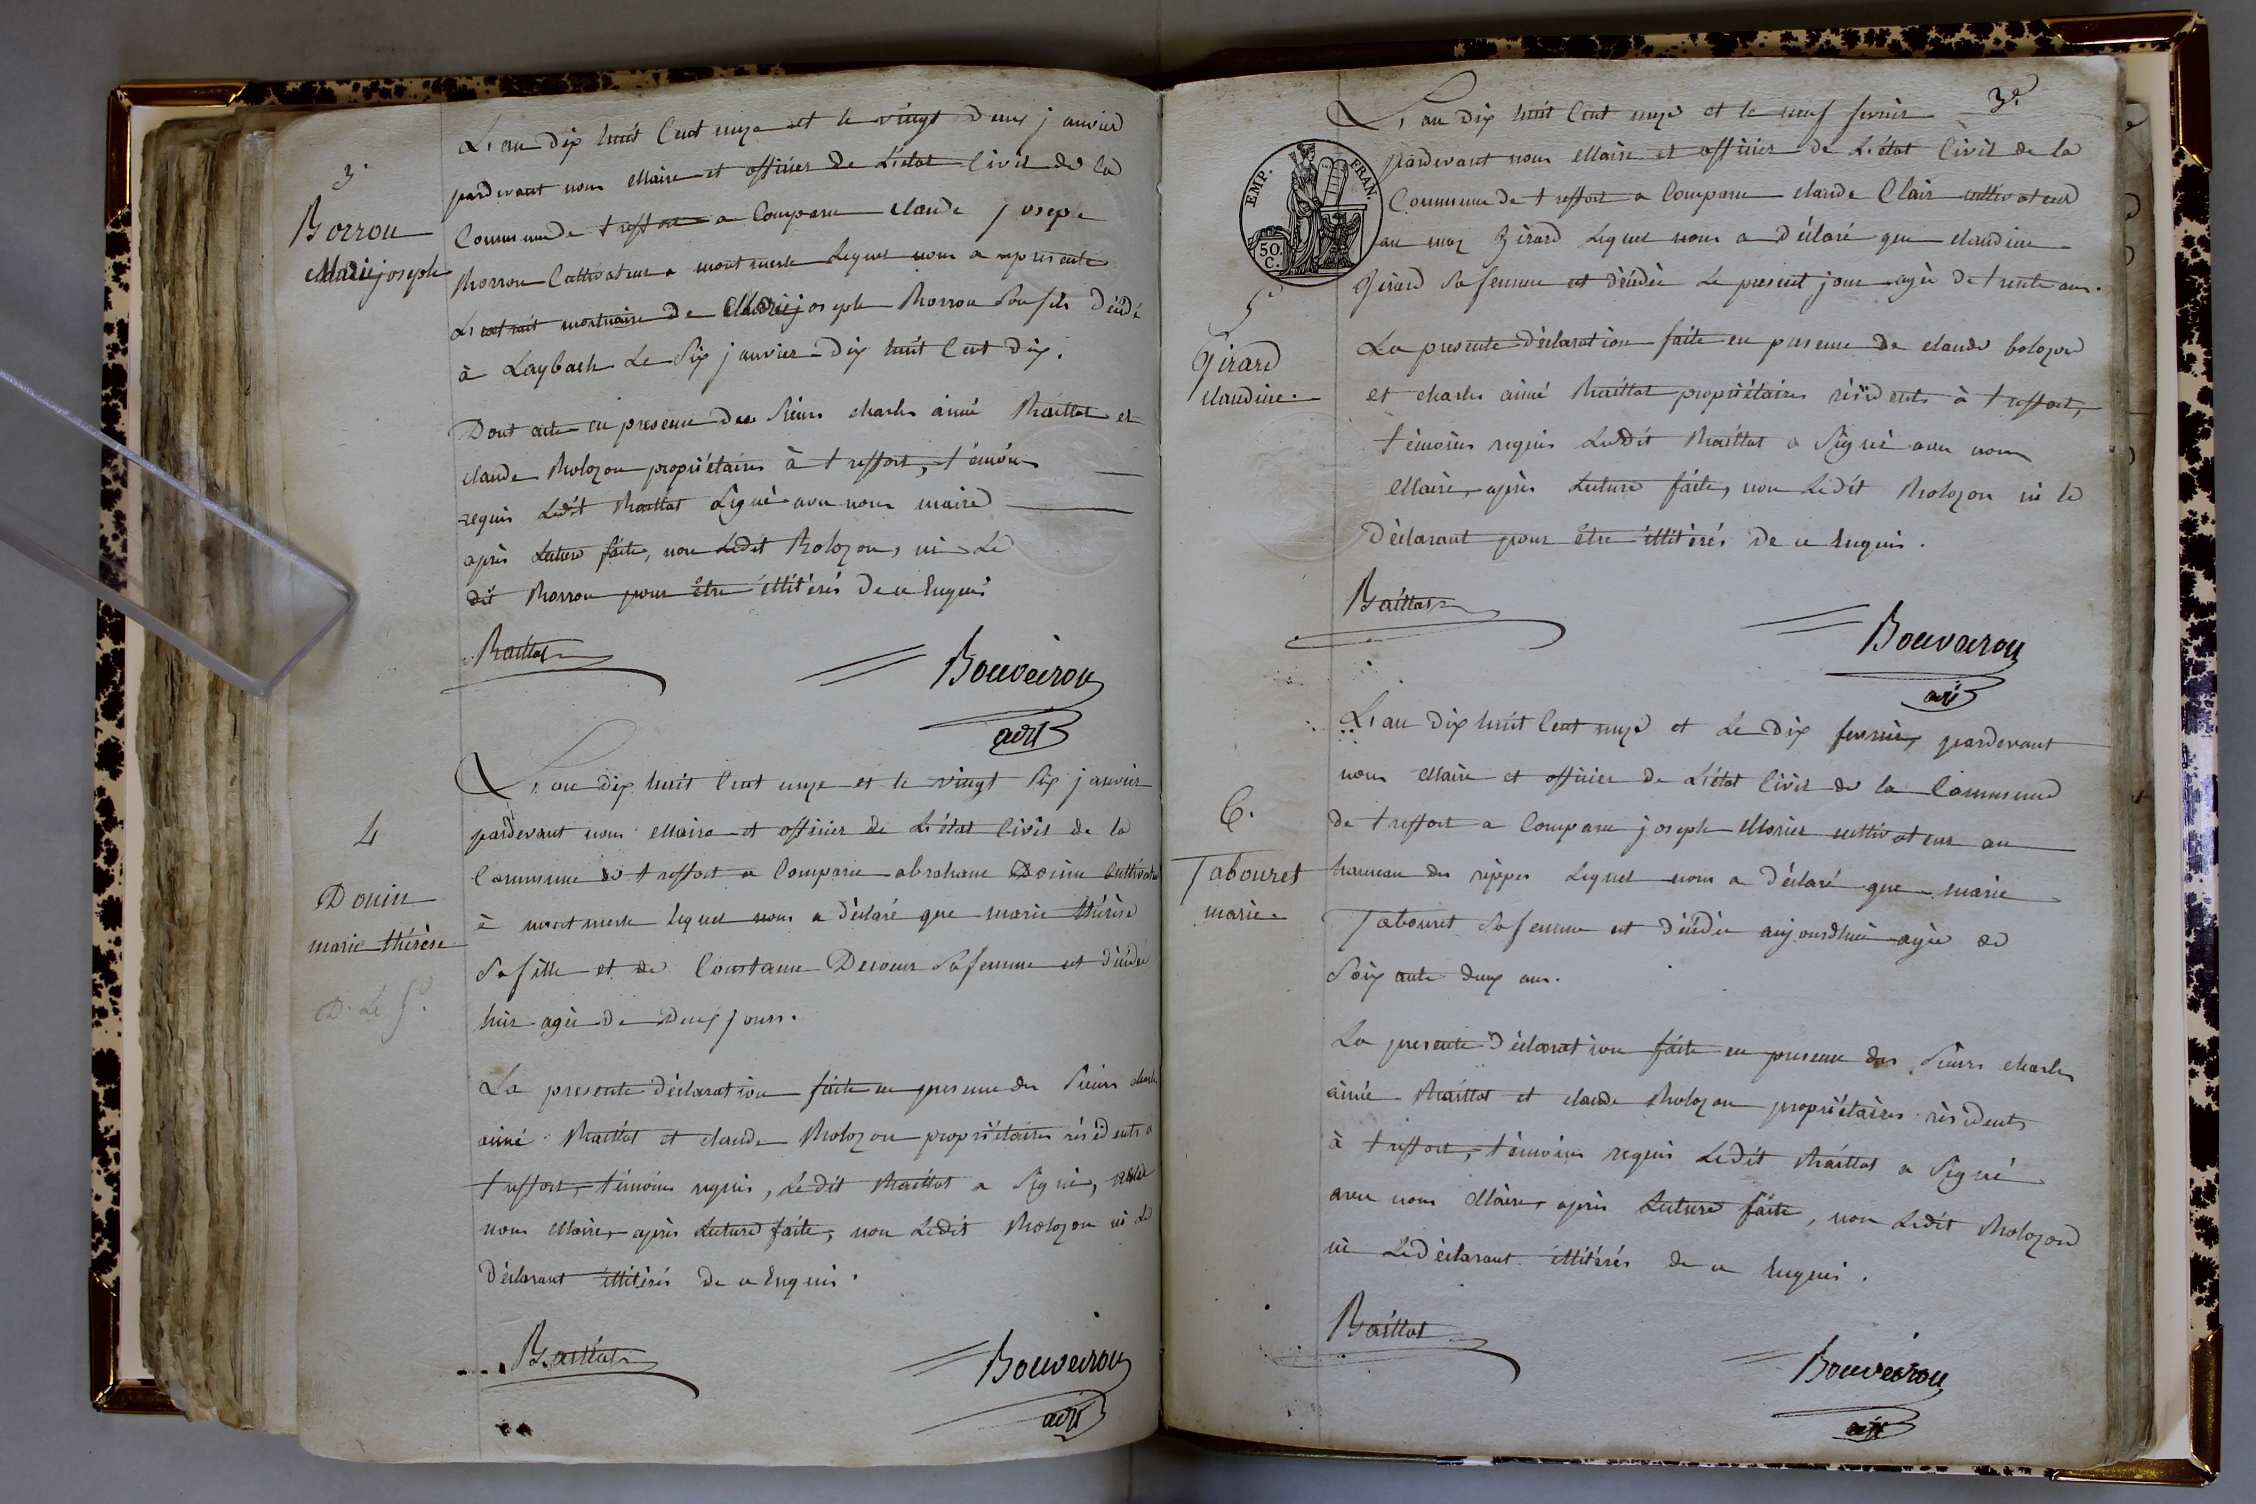 L'an dix huit Cent onze et le vingt deux janvier
pardevant nous Maire et officier de L'état Civil de la
3e
Commune de treffort a Comparu claude joseph
Borron
Marie joseph
Borron Cultivateur a montmerle Lequel nous a représenté
L'extrait mortuaire de Marie joseph Borron Son fils décédé
à Laybach Le Six janvier dix huit Cent dix.
Dont acte en presence des Sieurs charles aimé Baillat et
claude Bolozon propriétaires à treffort, témoins
requis Ledit Baillat Signé avec nous maire
après Lecture faite, non Ledit Bolozon, ni Le
dit Borron pour être illitérés de ce Enquis
Baillat
Bouveiron
adjt
L'an dix huit Cent onze et le vingt Six janvier
4
pardevant nous Maire et officier de L'état Civil de la
Commune de treffort a Comparu abraham Donin Cultivateur
Donin
marie thérèse
à montmerle lequel nous a déclaré que marie thérèse
Sa fille et de Constance Sa femme est décédée
D. Le
hier agée de Deux jours.
La presente déclaration faite en presence des Sieurs charles
aimé Baillat et claude Bolozon propriétaires résidents à
treffort, témoins requis, Ledit Baillat a Signé, avec
nous Maire, après Lecture faite, non Ledit Bolozon ni Le
Déclarant illitérés de ce Enquis.
Baillat
Bouveiron
adjt
3e.
L'an dix huit Cent onze et le neuf fevrier
EMP. FRAN.
50. C.
pardevant nous Maire et officier de L'état Civil de la
Commune de treffort a Comparu claude Clair cultivateur
au maz Girard Lequel nous a déclaré que claudine
Girard Sa femme est décédée Le present jour agée de trente ans.
5e
Girard
claudine.
La presente déclaration faite en presence de claude bolozon
et charles aimé Baillat propriétaires résidents à treffort,
témoins requis Ledit Baillat a Signé avec nous
Maire, après Lecture faite, non Ledit Bolozon ni le
Déclarant pour être illitérés de ce Enquis.
Baillat
Bouveiron
adjt
L'an dix huit Cent onze et Le dix fevrier, pardevant
nous Maire et officier de L'état Civil de la Commune
6.
de treffort a Comparu joseph Morier cultivateur au
Tabouret
marie.
hameau des rippes Lequel nous a déclaré que marie
Tabouret Sa femme est décédée aujourdhui agée de
Soixante deux ans.
La presente déclaration faite en presence des Sieurs charles
aimé Baillat et claude Bolozon propriétaires résidents
à treffort, témoins requis Ledit Baillat a Signé
avec nous Maire, après Lecture faite, non Ledit Bolozon
ni Le Déclarant illitérés de ce Enquis.
Baillat
Bouveiron
adjt